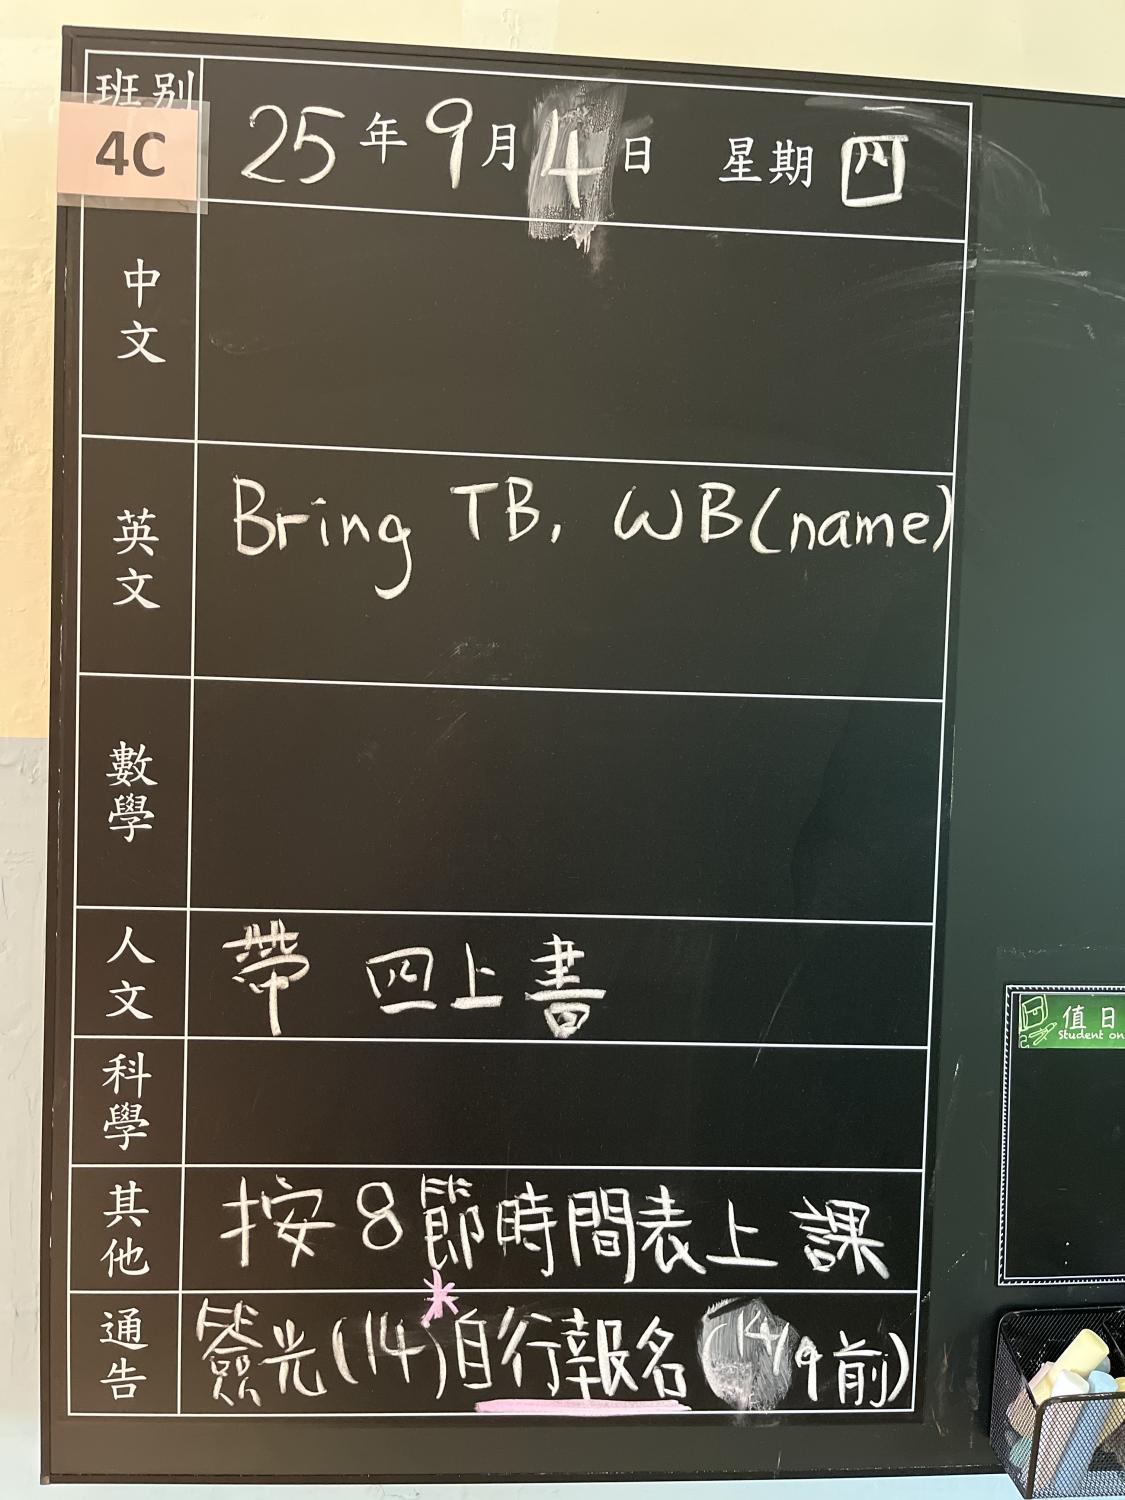 班別
4C
25年9月4日 星期四
中文
英文
Bring TB, WB(name)
數學
人文
帶 四上書
科學
其他
按8節時間表上課
通告
簽光(14)*自行報名(14/9前)
值日
Student on